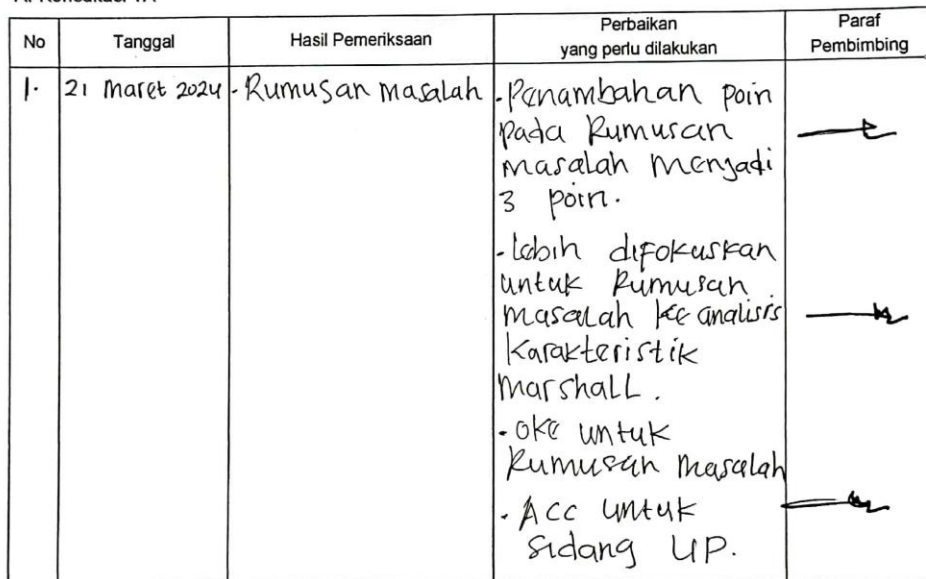 No
Tanggal
Hasil Pemeriksaan
Perbaikan
yang perlu dilakukan
Paraf
Pembimbing
1.
21 Maret 2024
- Rumusan masalah
- Penambahan poin
pada Rumusan
masalah menjadi
3 poin.
- lebih difokuskan
untuk Rumusan
masalah ke analisis
Karakteristik
Marshall.
- oke untuk
Rumusan masalah
- Acc untuk
sidang UP.